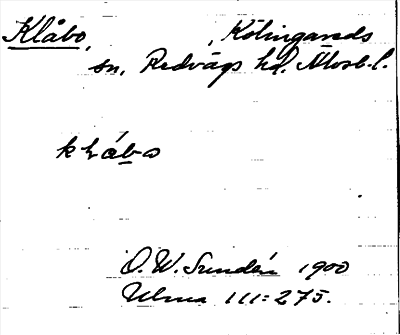 Klåbo, , Kölingareds
sn, Redvägs hd. Älvsb. l.
O. W. Sundén 1900
Ulma 111:275.